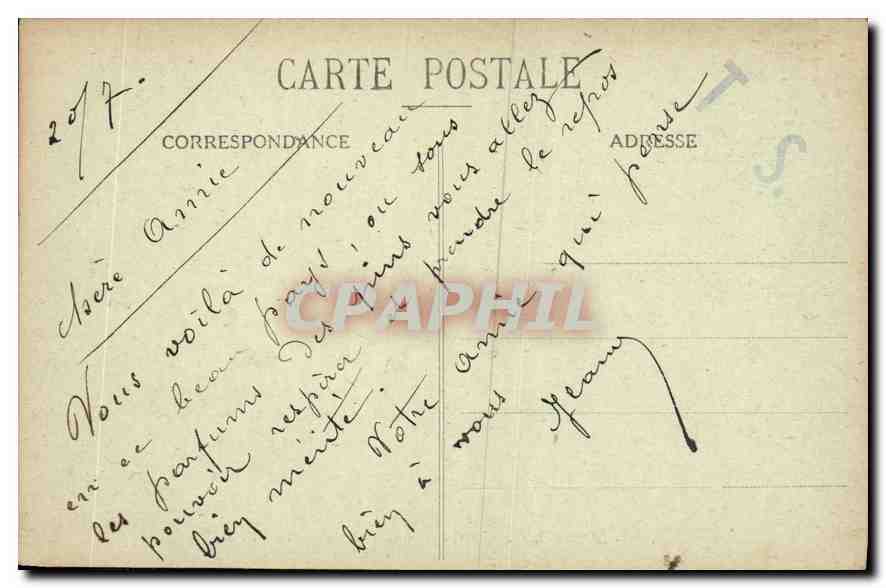 CARTE POSTALE
CORRESPONDANCE
ADRESSE
T
S.
20/7.
Chère Amie
Vous voilà de nouveau
en ce beau pays, ou sous
les parfums des pins vous allez
pouvoir respirer & prendre le repos
bien mérité.
Votre Amie qui pense
bien à vous
Jeanne
CPAPHIL